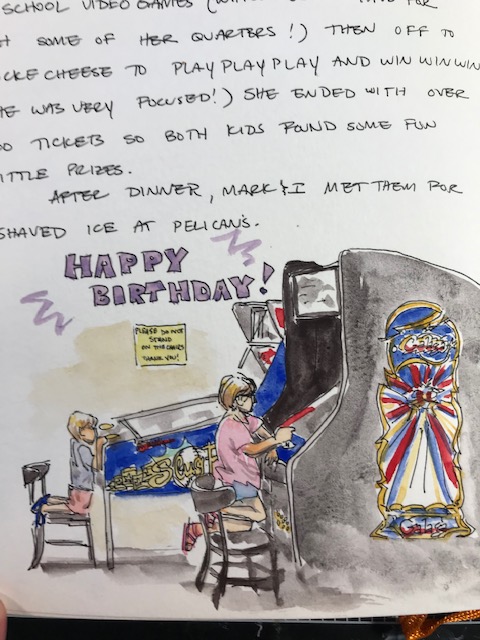 SCHOOL VIDEO GAMES
SOME OF HER QUARTERS!) THEN OFF TO
CHEESE TO PLAY PLAY PLAY AND WIN WIN WIN
WAS VERY FOCUSED!) SHE ENDED WITH OVER
TICKETS SO BOTH KIDS FOUND SOME FUN
PRIZES.
AFTER DINNER, MARK & I MET THEM FOR
SHAVED ICE AT PELICAN'S.
HAPPY
BIRTHDAY!
PLEASE DO NOT
STAND
ON THE CHAIRS
THANK YOU!
Galaga